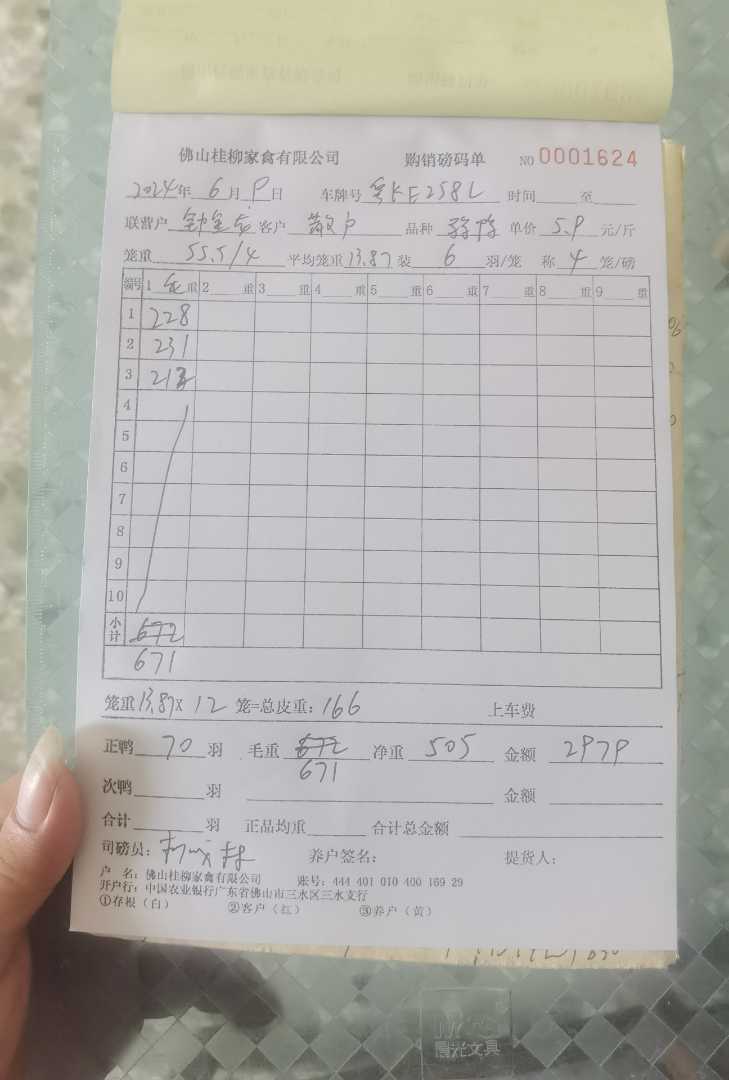 佛山桂柳家禽有限公司 购销磅码单 NO 0001624
2024年 6月 9日 车牌号 粤KE258L 时间 至
联营户 客户 散户 品种 单价 5.9 元/斤
笼重 55.5/4 平均笼重 13.87 装 6 羽/笼 称 4 笼/磅
编号 1 重 2 重 3 重 4 重 5 重 6 重 7 重 8 重 9 重
1 228
2 231
3 212
4
5
6
7
8
9
10
小计 672
671
笼重 13.87 X 12 笼=总皮重: 166 上车费
正鸭 70 羽 毛重 672 净重 505 金额 2979
671
次鸭 羽 金额
合计 羽 正品均重 合计总金额
司磅员: 养户签名: 提货人:
户 名: 佛山桂柳家禽有限公司 账号: 444 401 010 400 169 29
开户行: 中国农业银行广东省佛山市三水区三水支行
①存根(白) ②客户(红) ③养户(黄)
晨光文具